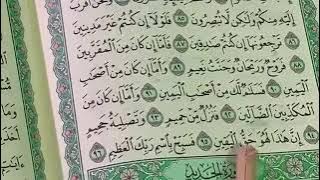 إِلَيْهِ مِنكُمْ وَلَٰكِن لَّا تُبْصِرُونَ ٨٥ فَلَوْلَا إِن كُنتُمْ غَيْرَ مَدِينِينَ ٨٦
تَرْجِعُونَهَا إِن كُنتُمْ صَٰدِقِينَ ٨٧ فَأَمَّا إِن كَانَ مِنَ الْمُقَرَّبِينَ
٨٨ فَرَوْحٌ وَرَيْحَانٌ وَجَنَّتُ نَعِيمٍ ٨٩ وَأَمَّا إِن كَانَ مِنْ أَصْحَٰبِ
الْيَمِينِ ٩٠ فَسَلَٰمٌ لَّكَ مِنْ أَصْحَٰبِ الْيَمِينِ ٩١ وَأَمَّا إِن كَانَ مِنَ
الْمُكَذِّبِينَ الضَّالِّينَ ٩٢ فَنُزُلٌ مِّنْ حَمِيمٍ ٩٣ وَتَصْلِيَةُ جَحِيمٍ
٩٤ إِنَّ هَٰذَا لَهُوَ حَقُّ الْيَقِينِ ٩٥ فَسَبِّحْ بِاسْمِ رَبِّكَ الْعَظِيمِ ٩٦
سُورَةُ الْحَدِيدِ